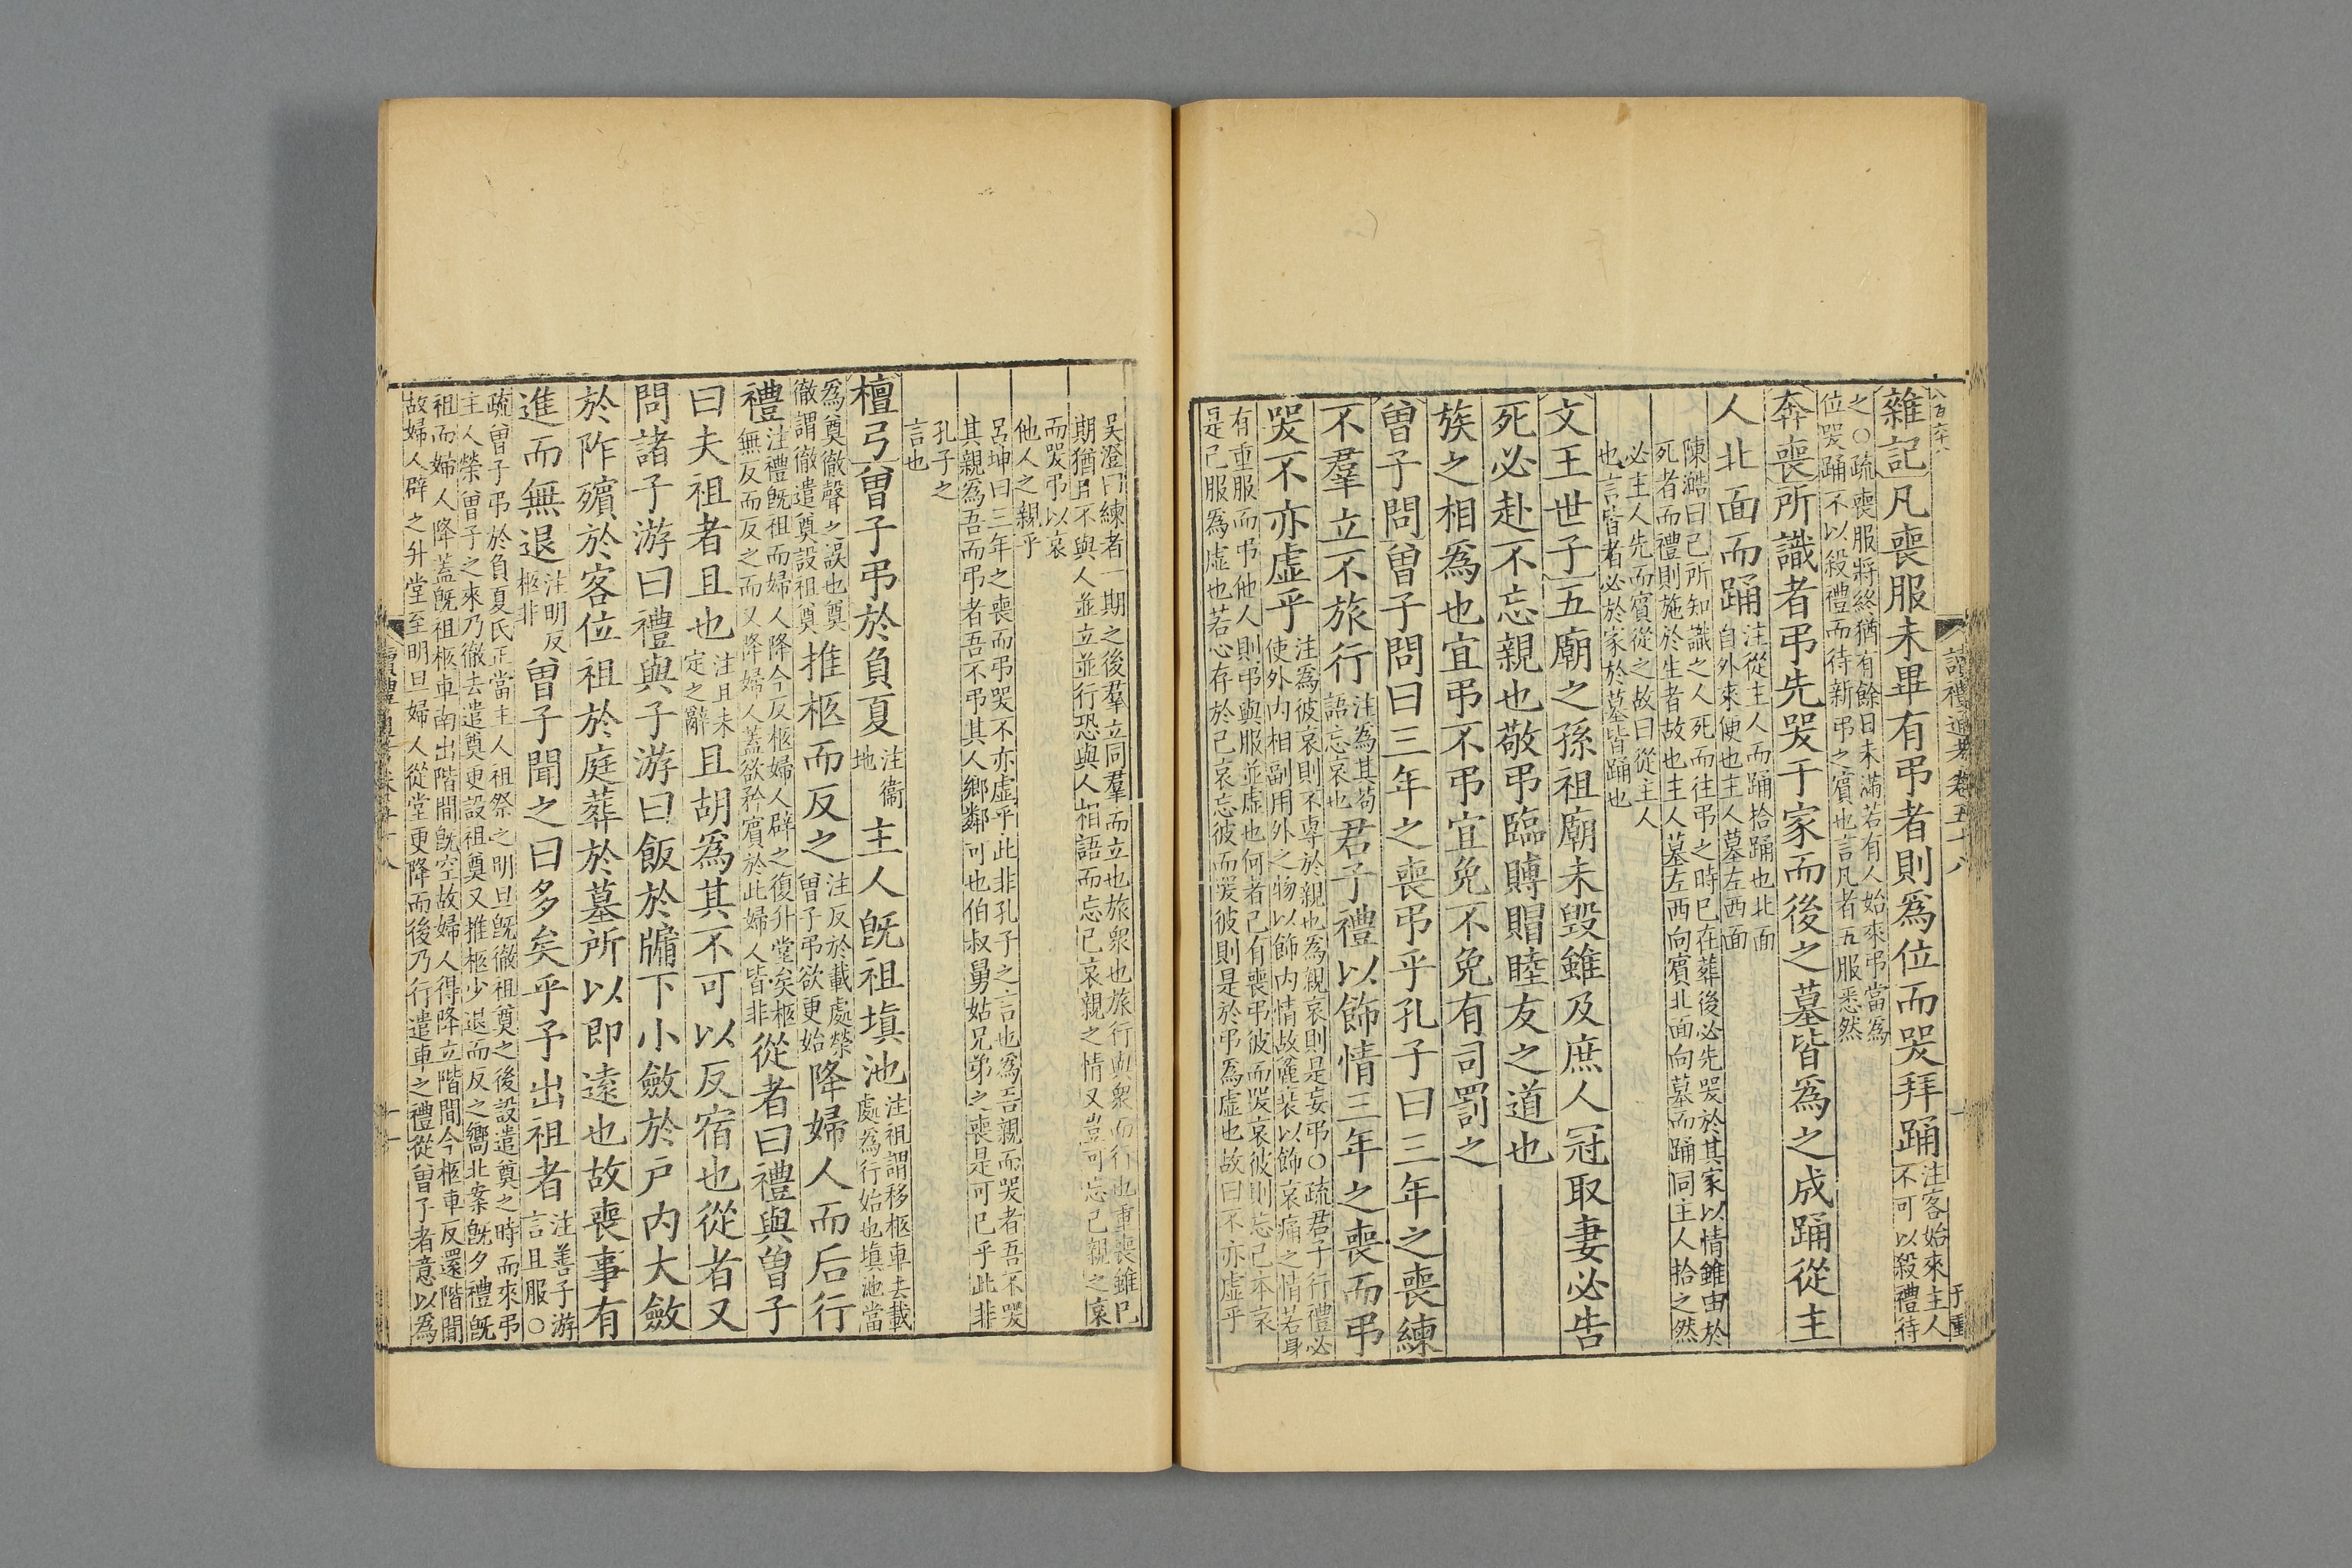 八百六十八
讀禮通考卷五十八
十一
子重
雜記凡喪服未畢有弔者則爲位而哭拜踊注客始來主人不可以殺禮待
之○疏喪服將終猶有餘日未滿若有人始來弔當爲位哭踊不以殺禮而待新弔之賓也言凡者五服悉然
奔喪所識者弔先哭于家而後之墓皆爲之成踊從主
人北面而踊注從主人而踊拾踊也北面自外來便也主人墓左西面
陳澔曰己所知識之人死而往弔之時已在葬後必先哭於其家以情雖由於死者而禮則施於生者故也主人墓左西向賓北面向墓而踊同主人拾之然
必主人先而賓從之故曰從主人也言皆者必於家於墓皆踊也
文王世子五廟之孫祖廟未毀雖及庶人冠取妻必告
死必赴不忘親也敬弔臨賻賵睦友之道也
族之相爲也宜弔不弔宜免不免有司罰之
曾子問曾子問曰三年之喪弔乎孔子曰三年之喪練
不羣立不旅行注爲其苟語忘哀也君子禮以飾情三年之喪而弔
哭不亦虛乎注爲彼哀則不專於親也爲親哀則是妄弔○疏君子行禮必使外內相副用外之物以飾內情故麤衰以飾哀痛之情若身
有重服而弔他人則弔與服並虛也何者己有喪弔彼而哭哀彼則忘己本哀是己服爲虛也若心存於己哀忘彼而哭彼則是於弔爲虛也故曰不亦虛乎
吳澄曰練者一期之後羣立同羣而立也旅衆也旅行與衆而行也重喪雖已期猶且不與人並立並行恐與人相語而忘己哀親之情又豈可忘己親之哀
而哭弔以哀他人之親乎
呂坤曰三年之喪而弔哭不亦虛乎此非孔子之言也爲吾親而哭者吾不哭其親爲吾而弔者吾不弔其人鄉鄰可也伯叔舅姑兄弟之喪是可已乎此非
孔子之言也
檀弓曾子弔於負夏注衞地主人旣祖塡池注祖謂移柩車去載處爲行始也塡池當
爲奠徹聲之誤也奠徹謂徹遣奠設祖奠推柩而反之注反於載處榮曾子弔欲更始降婦人而后行
禮注禮旣祖而婦人降今反柩婦人辟之復升堂矣柩無反而反之而又降婦人蓋欲矜賓於此婦人皆非從者曰禮與曾子
曰夫祖者且也注且未定之辭且胡爲其不可以反宿也從者又
問諸子游曰禮與子游曰飯於牖下小斂於戶內大斂
於阼殯於客位祖於庭葬於墓所以即遠也故喪事有
進而無退注明反柩非曾子聞之曰多矣乎予出祖者注善子游言且服○
疏曾子弔於負夏氏正當主人祖祭之明旦旣徹祖奠之後設遣奠之時而來弔主人榮曾子之來乃徹去遣奠更設祖奠又推柩少退而反之嚮北案旣夕禮旣
祖而婦人降蓋旣祖柩車南出階間旣空故婦人得降立階間今柩車反還階間故婦人辟之升堂至明旦婦人從堂更降而後乃行遣車之禮從曾子者意以爲